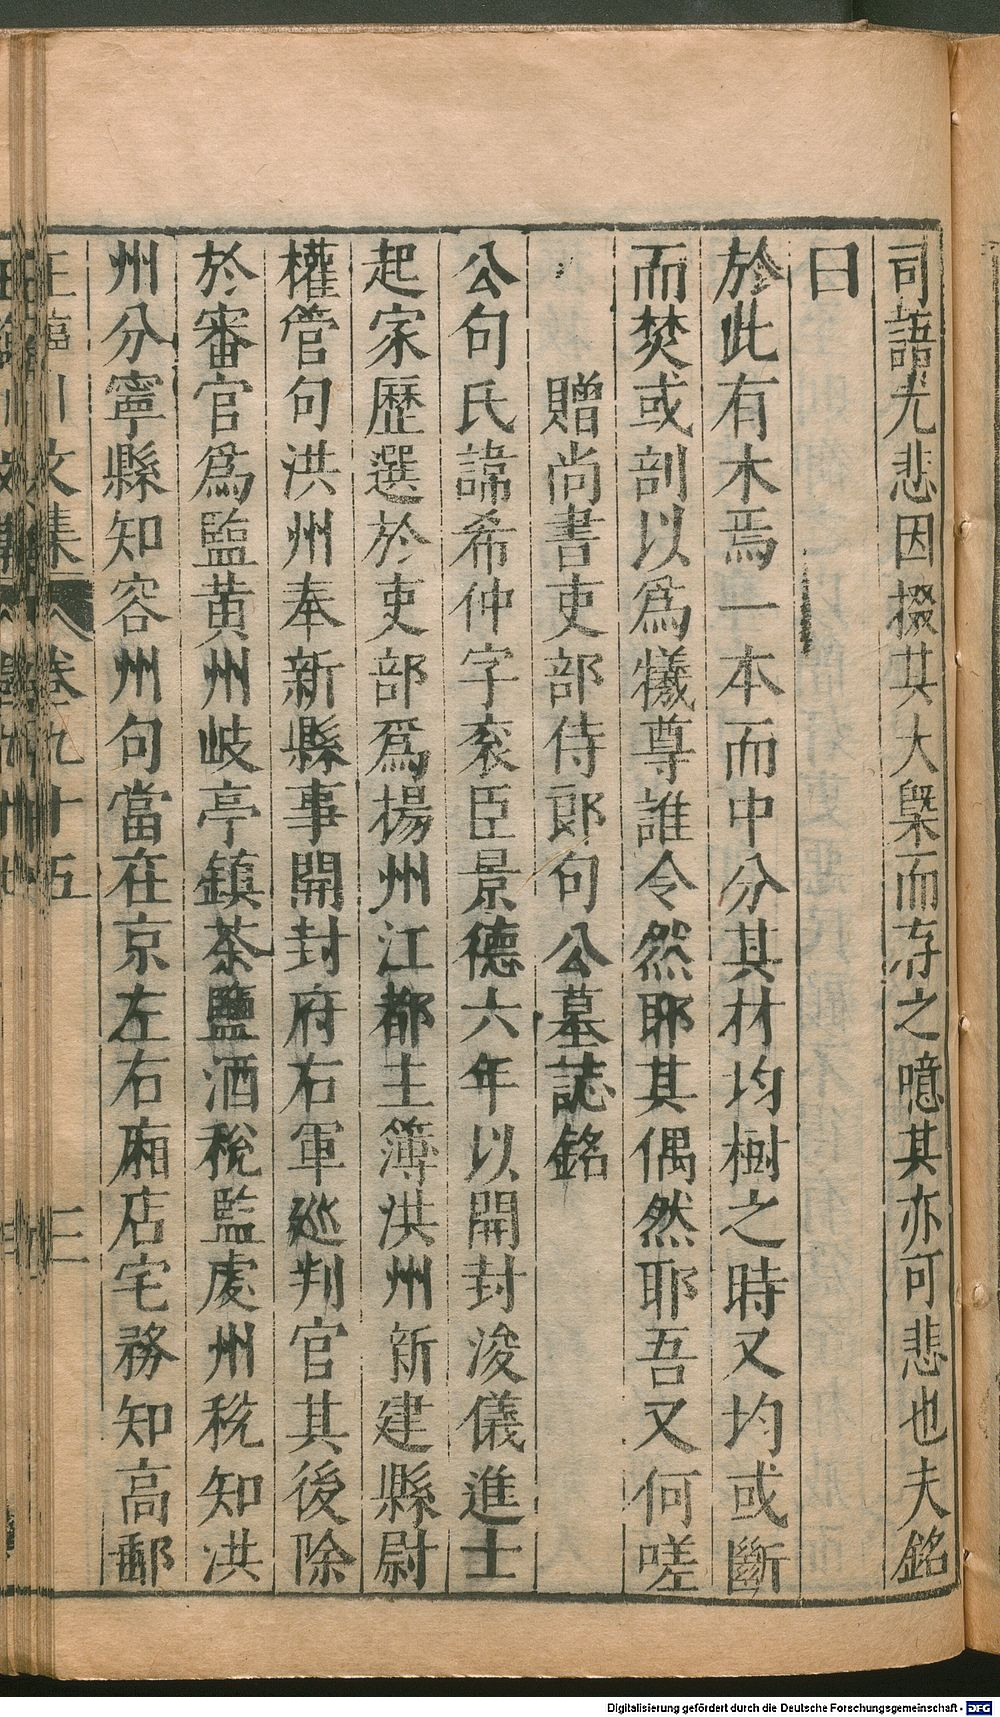 司語尤悲因掇其大槩而存之噫其亦可悲也夫銘
曰
於此有木焉一本而中分其材均樹之時又均或斷
而焚或剖以爲犧尊誰令然耶其偶然耶吾又何嗟
贈尚書吏部侍郎句公墓誌銘
公句氏諱希仲字袞臣景德六年以開封浚儀進士
起家歷選於吏部爲揚州江都主簿洪州新建縣尉
權管句洪州奉新縣事開封府右軍巡判官其後除
於審官爲監黃州岐亭鎮茶鹽酒稅監處州稅知洪
州分寧縣知容州句當在京左右廂店宅務知高郵
王臨川文集 卷九十五 三
Digitalisierung gefördert durch die Deutsche Forschungsgemeinschaft - DFG